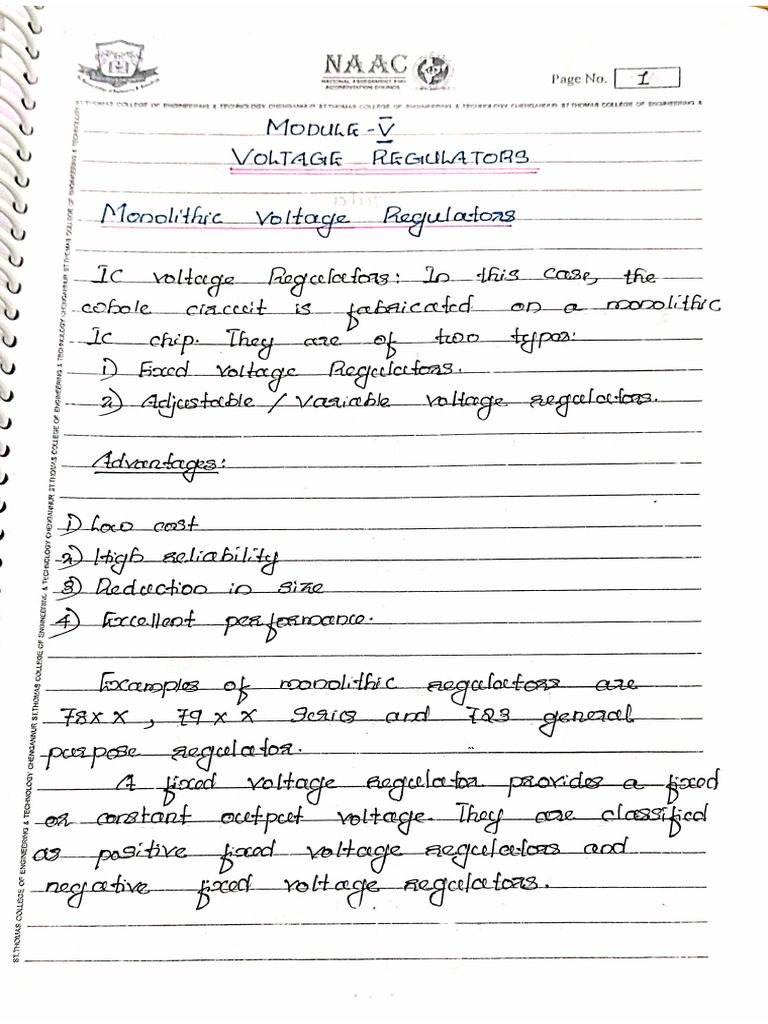 NAAC
NATIONAL ASSESSMENT AND
ACCREDITATION COUNCIL
Page No. 1
ST.THOMAS COLLEGE OF ENGINEERING & TECHNOLOGY CHENGANNUR ST.THOMAS COLLEGE OF ENGINEERING & TECHNOLOGY CHENGANNUR ST.THOMAS COLLEGE OF ENGINEERING &
MODULE - V
VOLTAGE REGULATORS
Monolithic Voltage Regulators
IC voltage Regulators: In this case, the
whole circuit is fabricated on a monolithic
IC chip. They are of two types:
1) Fixed voltage Regulators.
2) Adjustable / Variable voltage regulators.
Advantages:
1) Low cost
2) High reliability
3) Reduction in size
4) Excellent performance.
Examples of monolithic regulators are
78xx, 79xx Series and 723 general
purpose regulator.
A fixed voltage regulator provides a fixed
or constant output voltage. They are classified
as positive fixed voltage regulators and
negative fixed voltage regulators.
ST.THOMAS COLLEGE OF ENGINEERING & TECHNOLOGY CHENGANNUR ST.THOMAS COLLEGE OF ENGINEERING & TECHNOLOGY CHENGANNUR ST.THOMAS COLLEGE OF ENGINEERING & TECHNOLOGY CHENGANNUR ST.THOMAS COLLEGE OF ENGINEERING & TECHNOLOGY